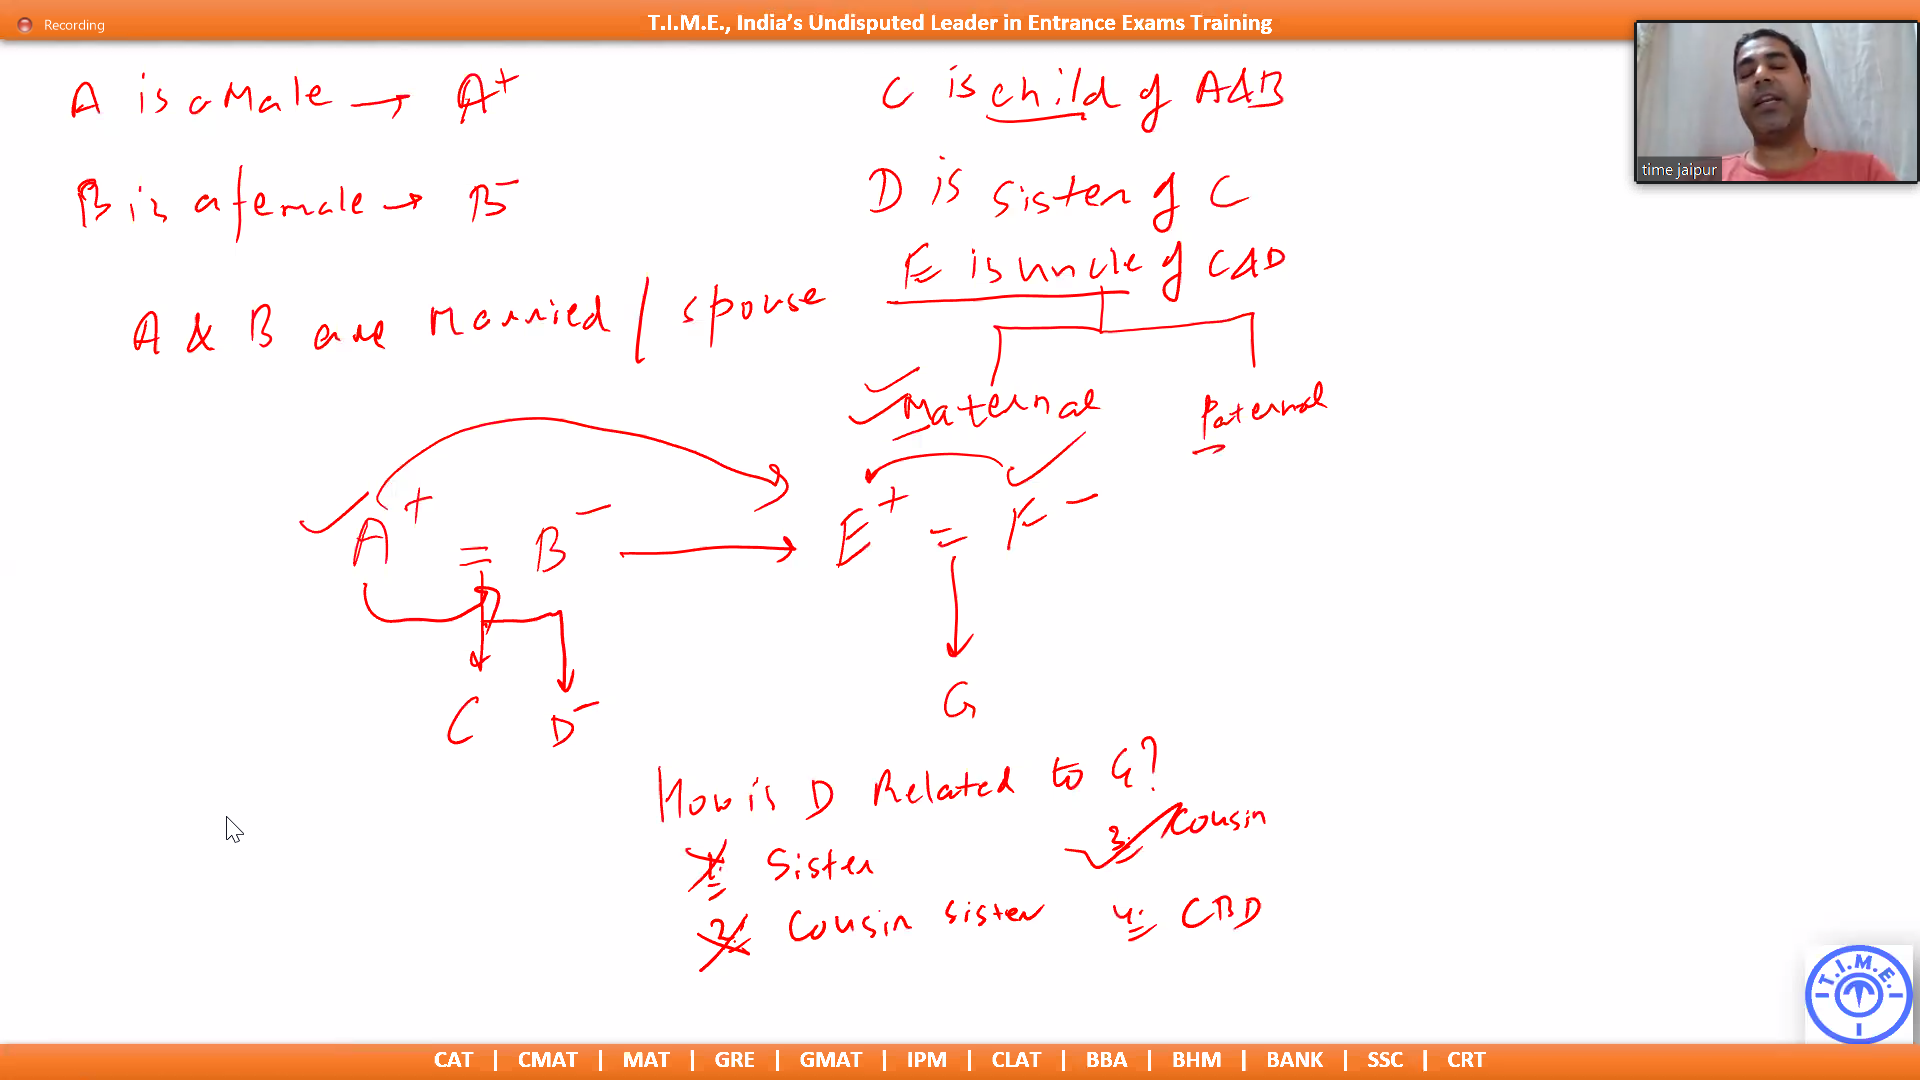 Recording
T.I.M.E., India's Undisputed Leader in Entrance Exams Training
time jaipur
A is a Male → A+
B is a female → B-
A & B are Married / spouse
C is child of A&B
D is sister of C
E is uncle of C&D
Maternal
Paternal
A+ = B- → E+ = F-
C D-
G
How is D Related to G?
1. Sister
3. Cousin
2. Cousin sister
4. CBD
T.I.M.E.
CAT | CMAT | MAT | GRE | GMAT | IPM | CLAT | BBA | BHM | BANK | SSC | CRT